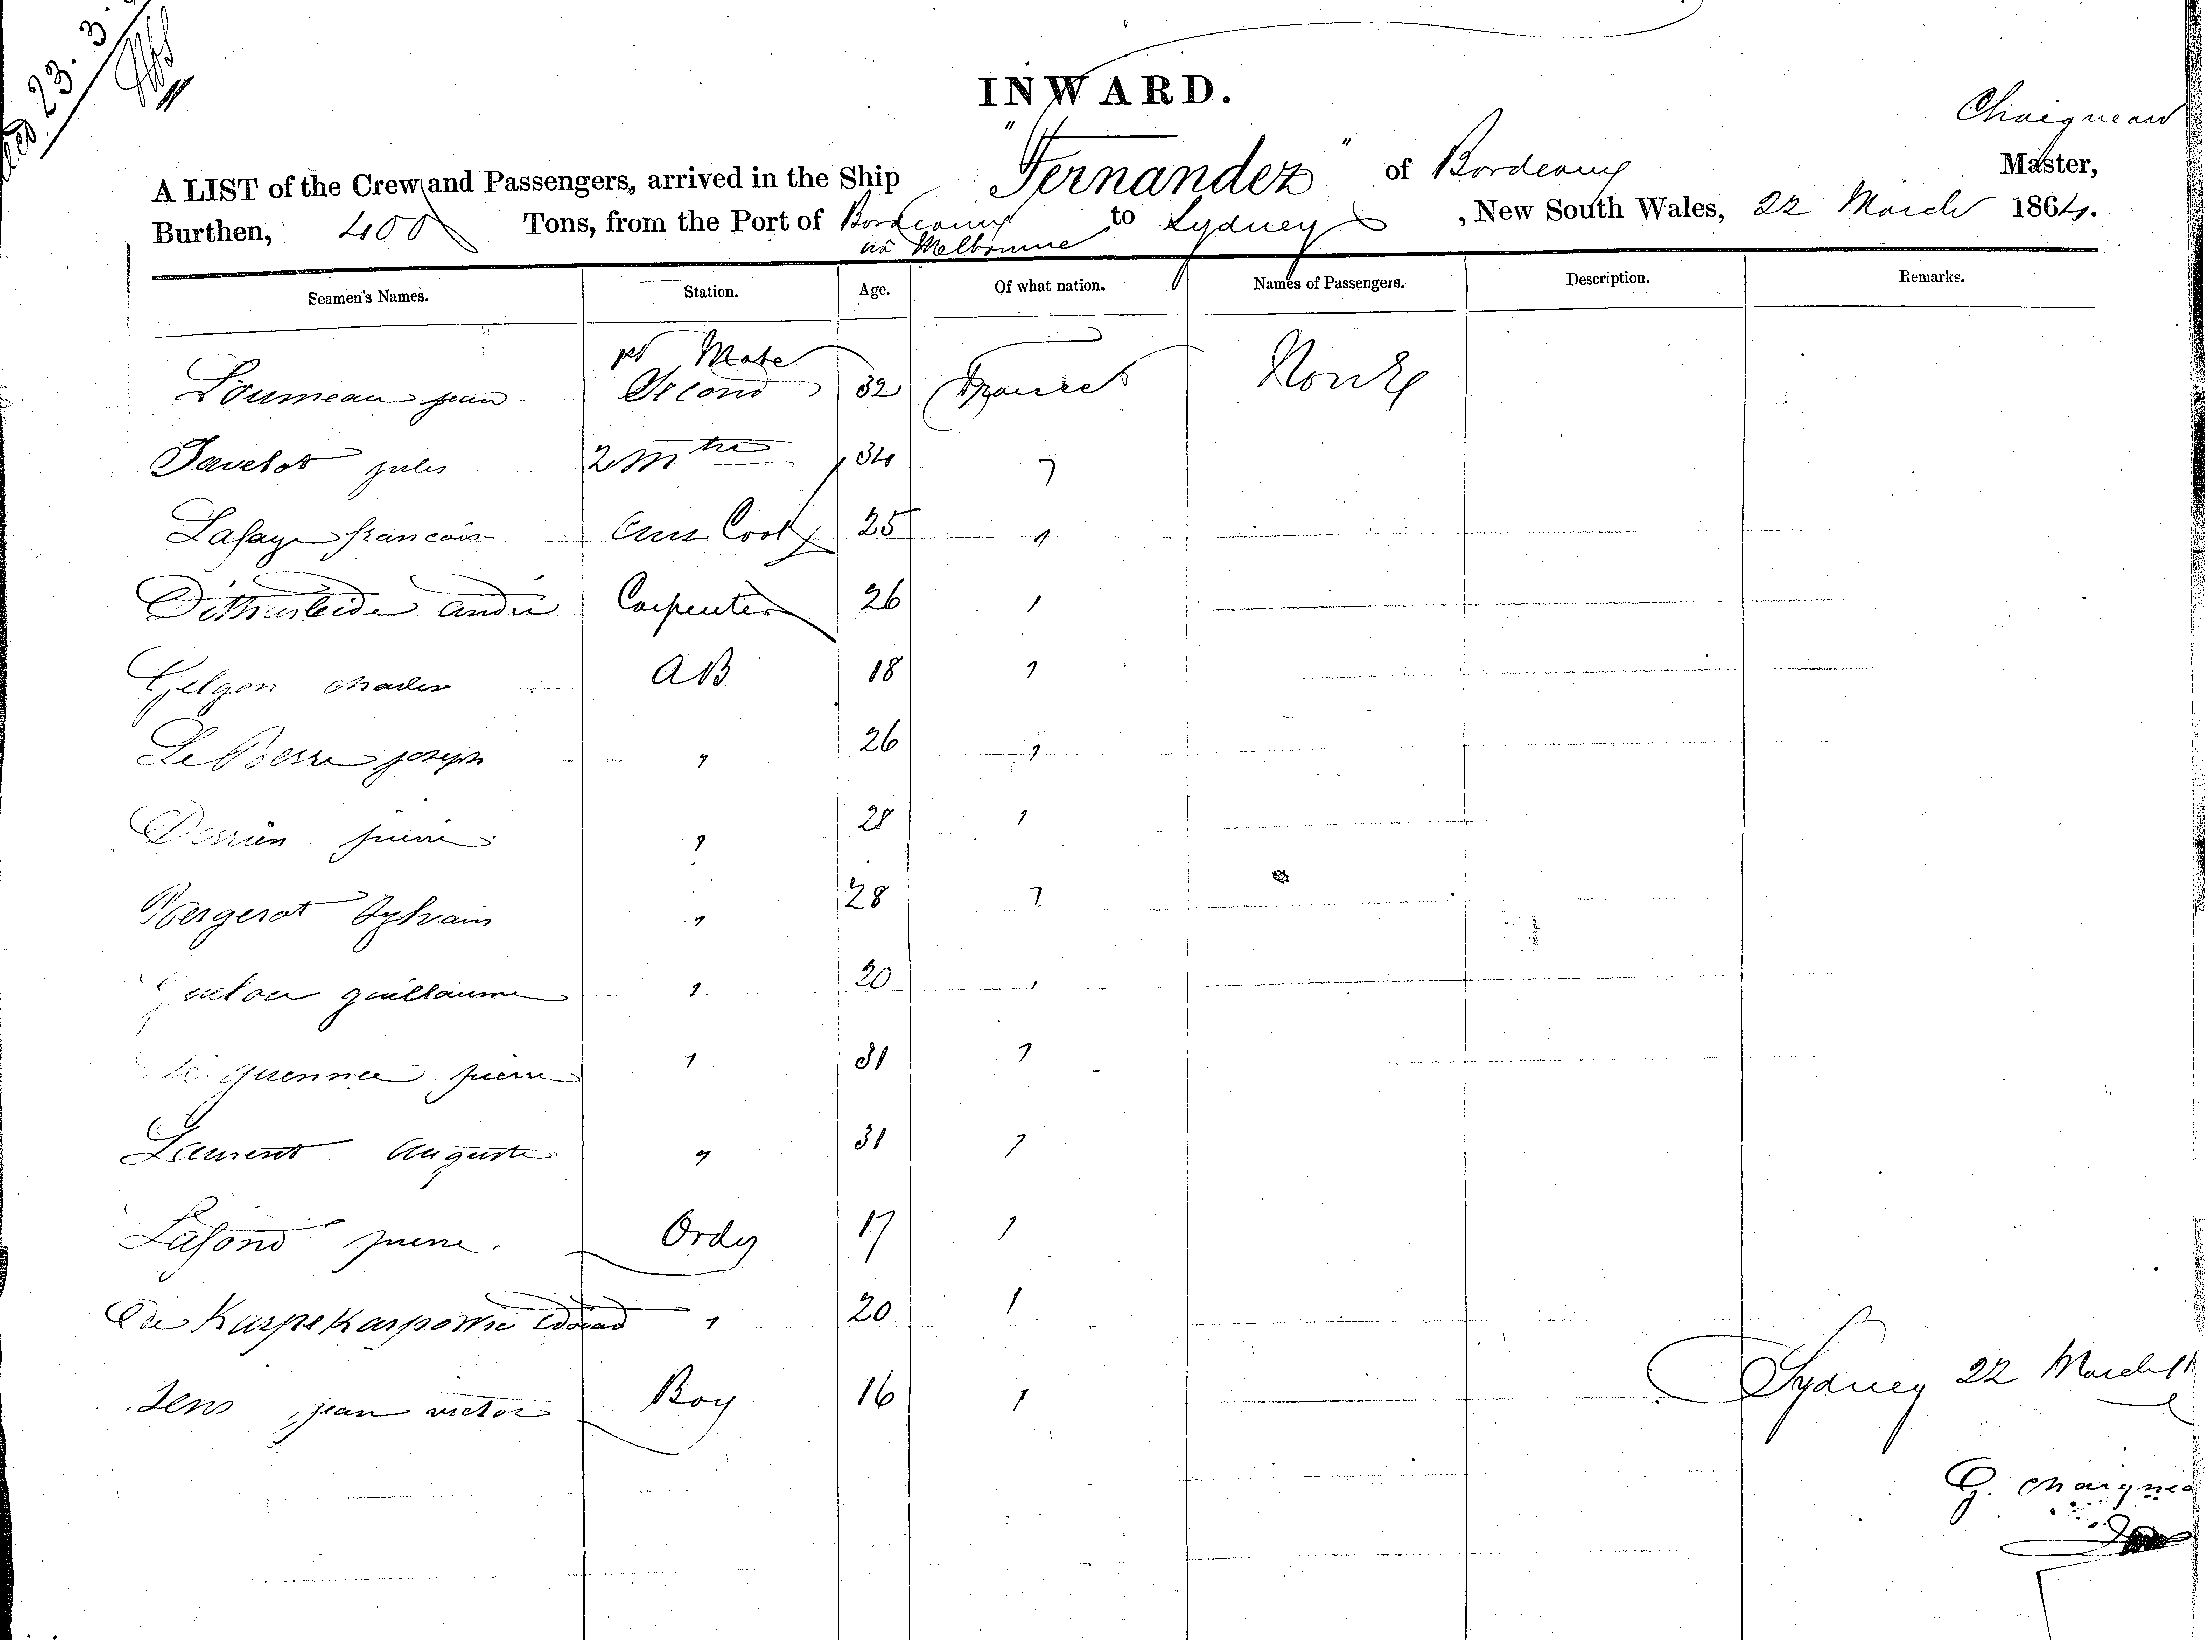 23. 3.
INWARD.
Chaigneau
A LIST of the Crew and Passengers, arrived in the Ship "Fernandez" of Bordeaux Master,
Burthen, 400 Tons, from the Port of Bordeaux to Sydney , New South Wales, 22 March 1864.
Melbourne
Seamen's Names. Station. Age. Of what nation. Names of Passengers. Description. Remarks.
Mate
Loumeau jean Second 32 France None
Javelot jules 2 mtre 34 "
Lafaye francois Cook 25 "
andré Carpenter 26 "
Gelgon charles AB 18 "
Le Berre joseph " 26 "
Derrien pierre " 28 "
Bergerot Sylvain " 28 "
guillaume " 20 "
Le quennec pierre " 31 "
Laurent Auguste " 31 "
Lafond pierre. Ordy 17 "
De " 20 "
Sens jean victor Boy 16 "
Sydney 22 March
G. Chaignea